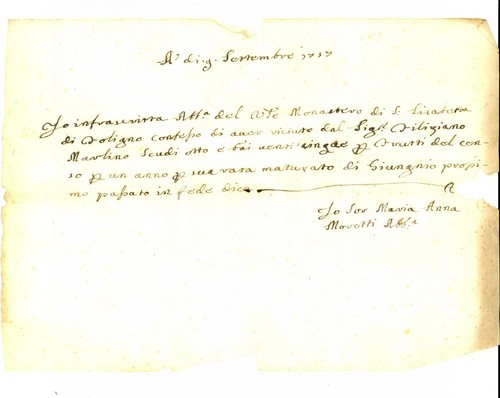 Aº di 9. Settembre 1717
Io infrascritta Abbª del Monastero di S.
di Foligno confesso di aver riciuto dal Sigʳ Filiziano
Marlino Scudi otto e bai venti cinque p frutti del cen-
so p un anno p sua rata maturato di Giungnio prosi-
mo passato in fede dico
Io Sor Maria Anna
Morotti Abbª